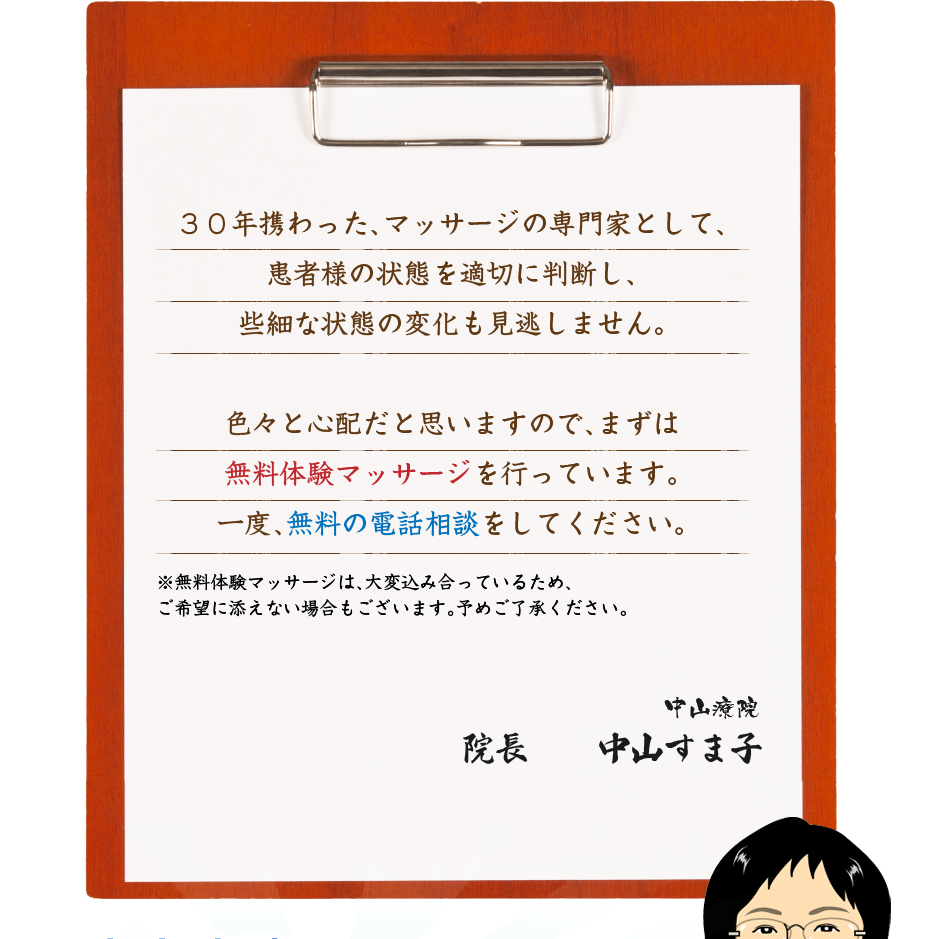 ３０年携わった、マッサージの専門家として、
患者様の状態を適切に判断し、
些細な状態の変化も見逃しません。
色々と心配だと思いますので、まずは
無料体験マッサージを行っています。
一度、無料の電話相談をしてください。
※無料体験マッサージは、大変込み合っているため、
ご希望に添えない場合もございます。予めご了承ください。
中山療院
院長　　中山すま子